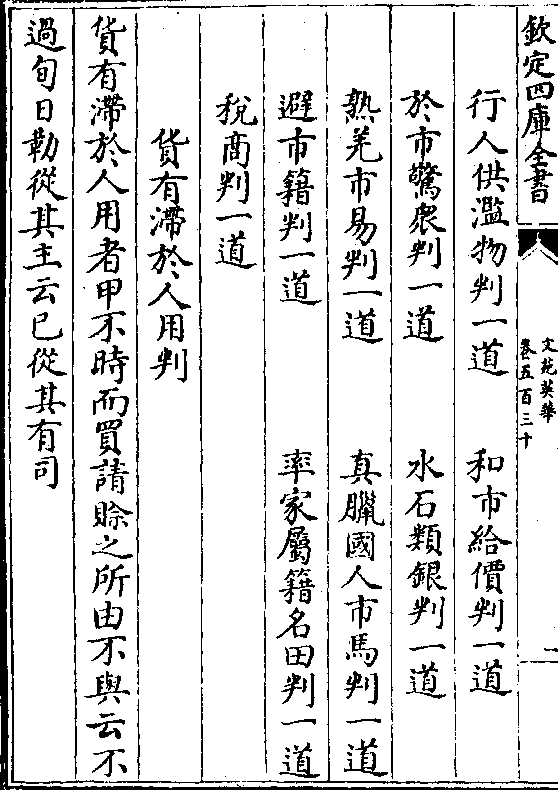 欽定四庫全書
文苑英華
卷五百三十
一
行人供濫物判一道 和市給價判一道
於市驚衆判一道 水石類銀判一道
熟羌市易判一道 真臘國人市馬判一道
避市籍判一道 率家屬籍名田判一道
稅商判一道
貨有滯於人用判
貨有滯於人用者甲不時而買請賒之所由不與云不
過旬日勒從其主云已從其有司